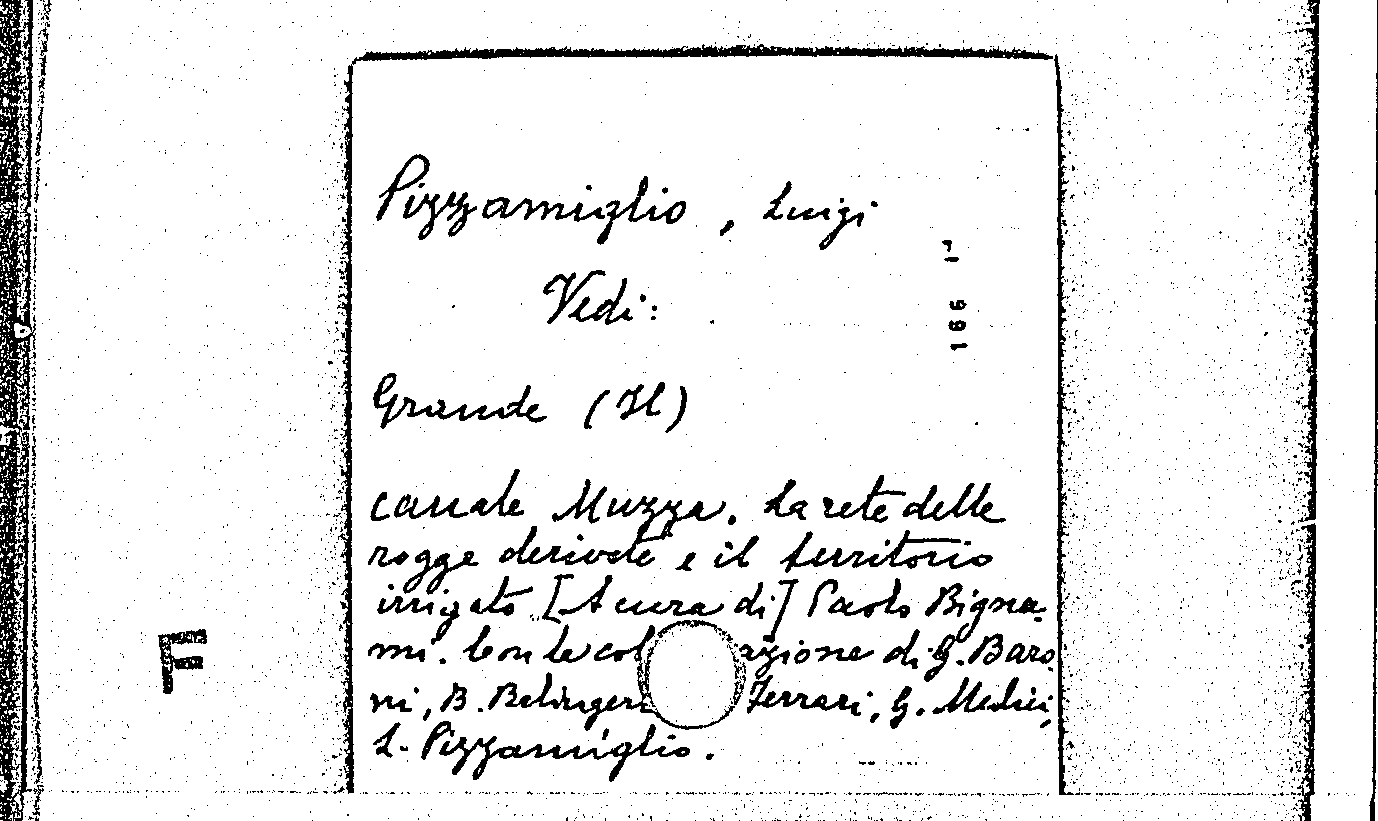 Pizzamiglio, Luigi
166 17
Vedi:
Grande (Il)
canale Muzza. La rete delle
rogge derivate e il territorio
irrigato [A cura di] Paolo Bigna-
mi. Con le col azione di G. Baro
ni, B. Belinger Ferrari, G. Medici,
L. Pizzamiglio.
F